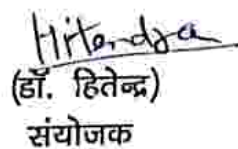 Hitendra
(डॉ. हितेन्द्र)
संयोजक